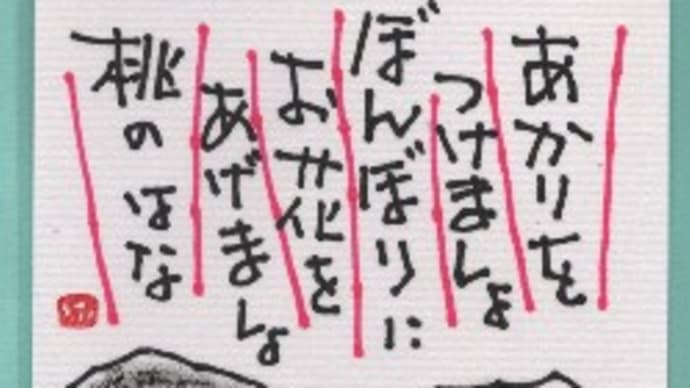 あかりを
つけましょ
ぼんぼりに
お花を
あげましょ
桃のはな